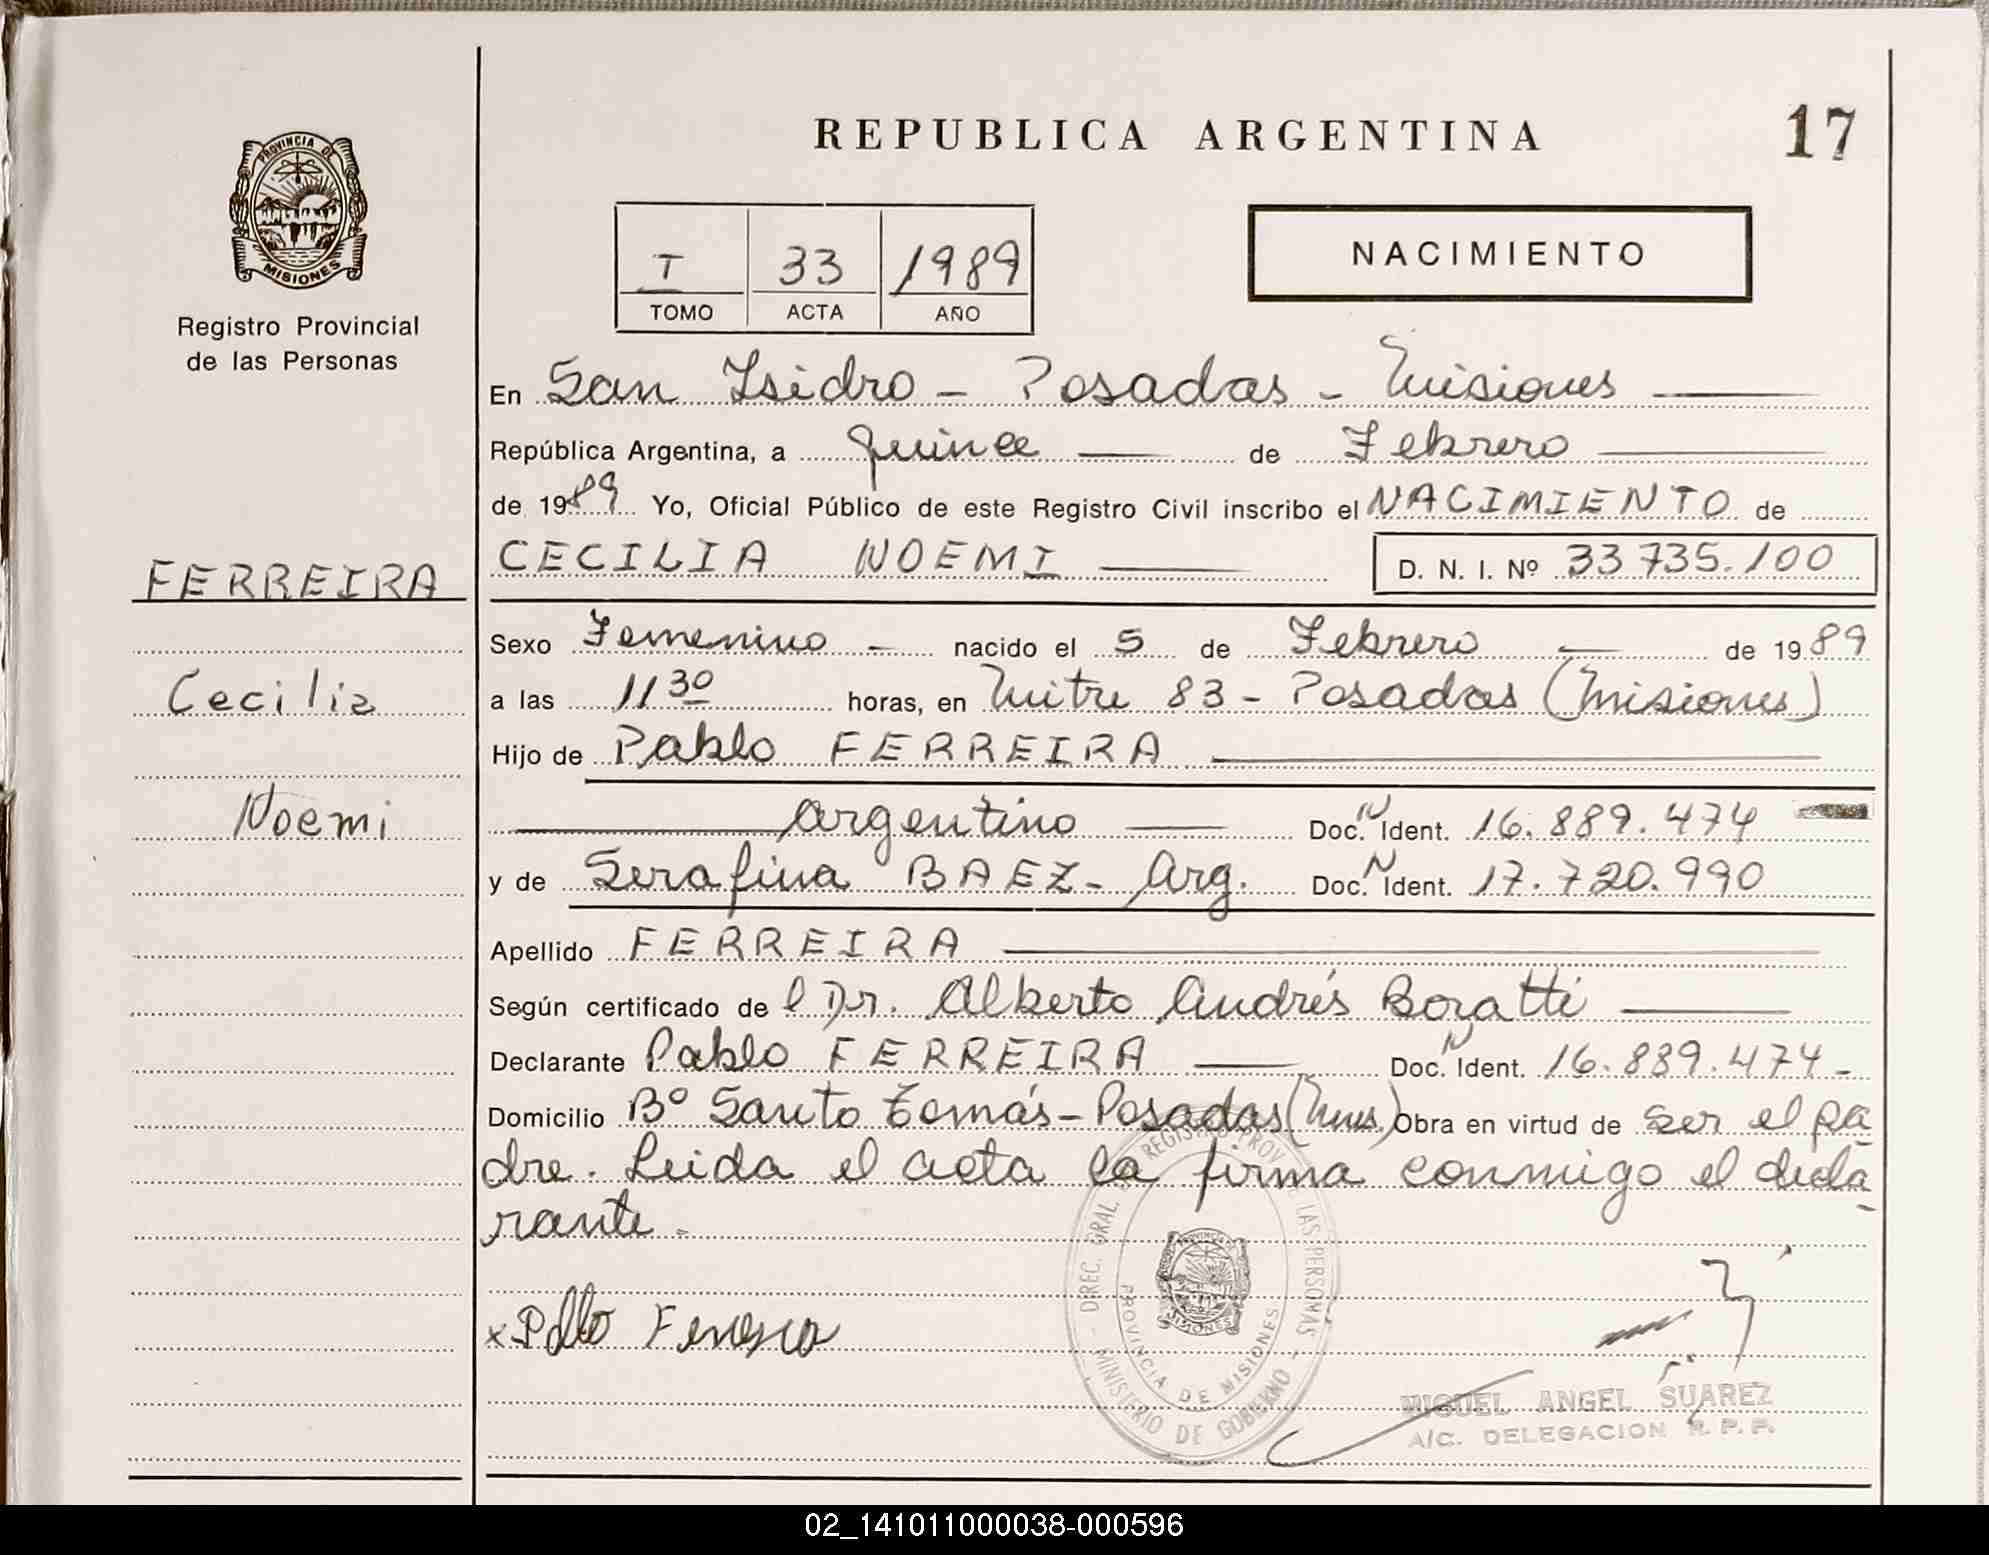 REPUBLICA ARGENTINA
17
PROVINCIA DE
MISIONES
Registro Provincial
de las Personas
I 33 1989
TOMO ACTA AÑO
NACIMIENTO
En San Isidro - Posadas - Misiones
República Argentina, a quince de Febrero
de 1989 Yo, Oficial Público de este Registro Civil inscribo el NACIMIENTO de
FERREIRA
CECILIA NOEMI D. N. I. Nº 33735.100
Sexo Femenino - nacido el 5 de Febrero de 1989
Cecilia
a las 11 30 horas, en Mitre 83 - Posadas (Misiones)
Hijo de Pablo FERREIRA
Noemi
Argentino Doc. N Ident. 16.889.474
y de Serafina BAEZ - Arg. Doc. N Ident. 17.720.990
Apellido FERREIRA
Según certificado de l Dr. Alberto Andrés Bozatti
Declarante Pablo FERREIRA Doc. N Ident. 16.889.474 -
Domicilio Bº Santo Tomás - Posadas (Mnes.) Obra en virtud de ser el pa
dre. Leida el acta la firma conmigo el decla
rante.
x Pablo Ferreira
DIREC. GRAL. REGISTRO PROV. DE LAS PERSONAS
PROVINCIA DE MISIONES
MINISTERIO DE GOBIERNO
PROVINCIA
MISIONES
MIGUEL ANGEL SUAREZ
A/C. DELEGACION R. P. P.
02_141011000038-000596